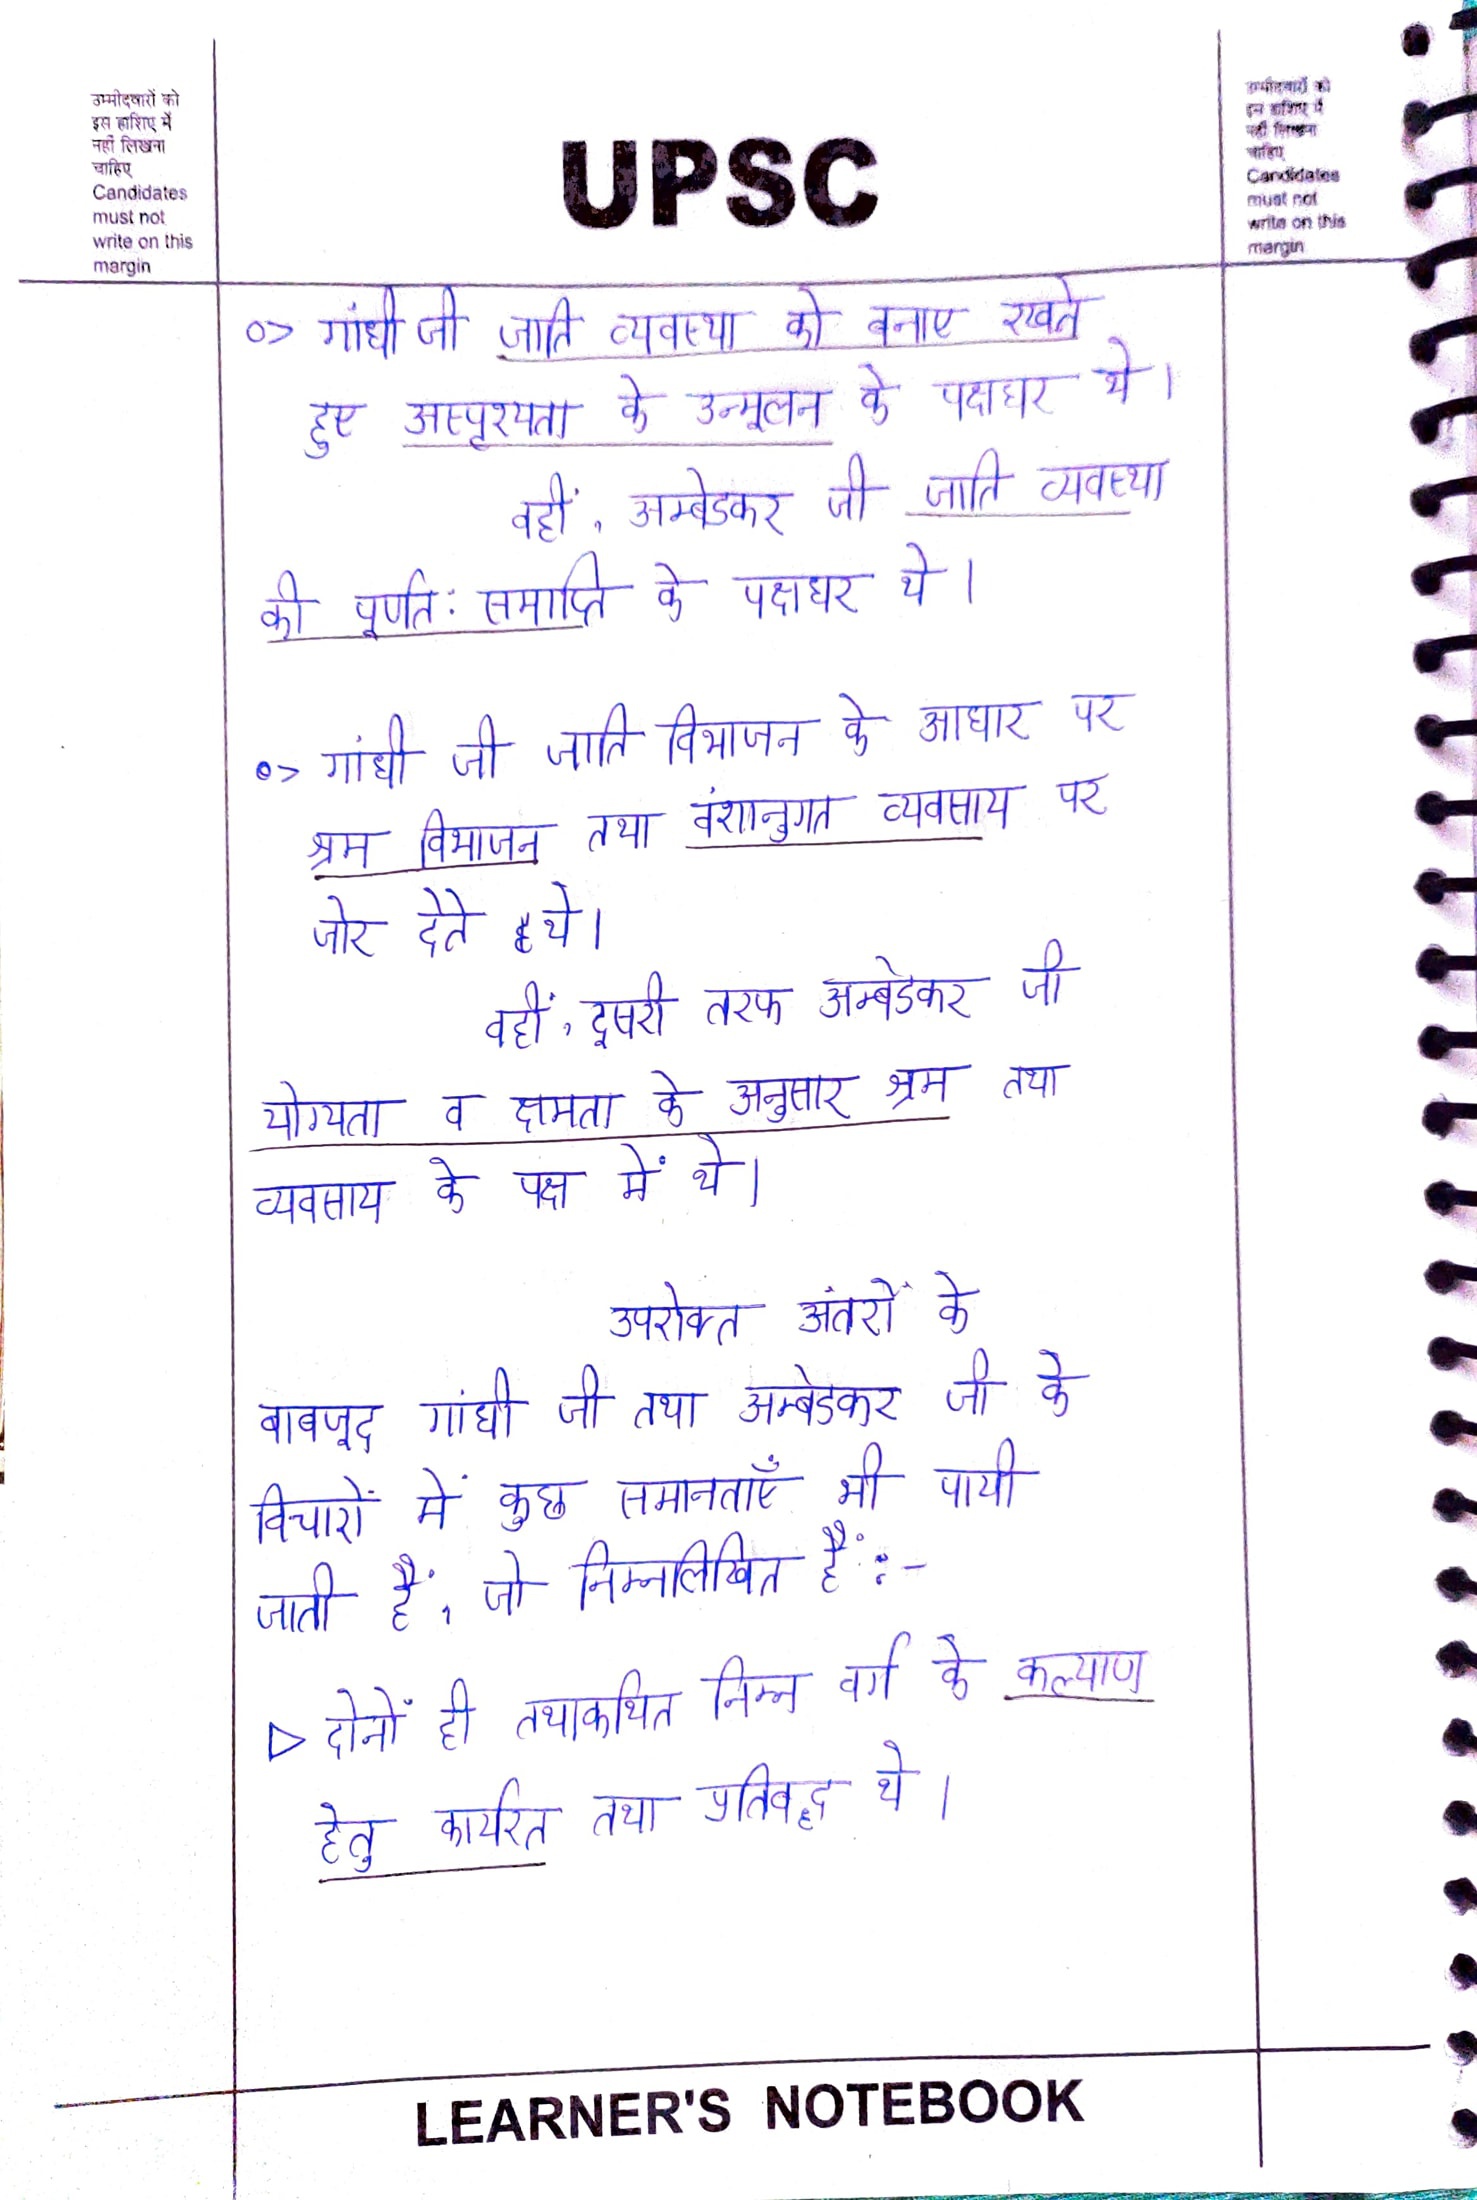 उम्मीदवारों को
इस हाशिए में
नहीं लिखना
चाहिए
Candidates
must not
write on this
margin
UPSC
उम्मीदवारों को
इस हाशिए में
नहीं लिखना
चाहिए
Candidates
must not
write on this
margin
०> गांधी जी जाति व्यवस्था को बनाए रखते
हुए अस्पृश्यता के उन्मूलन के पक्षधर थे।
वहीं, अम्बेडकर जी जाति व्यवस्था
की पूर्णत: समाप्ति के पक्षधर थे।
०> गांधी जी जाति विभाजन के आधार पर
श्रम विभाजन तथा वंशानुगत व्यवसाय पर
जोर देते थे।
वहीं, दूसरी तरफ अम्बेडकर जी
योग्यता व क्षमता के अनुसार श्रम तथा
व्यवसाय के पक्ष में थे।
उपरोक्त अंतरों के
बावजूद गांधी जी तथा अम्बेडकर जी के
विचारों में कुछ समानताएँ भी पायी
जाती हैं, जो निम्नलिखित हैं :-
▷ दोनों ही तथाकथित निम्न वर्ग के कल्याण
हेतु कार्यरत तथा प्रतिबद्ध थे।
LEARNER'S NOTEBOOK